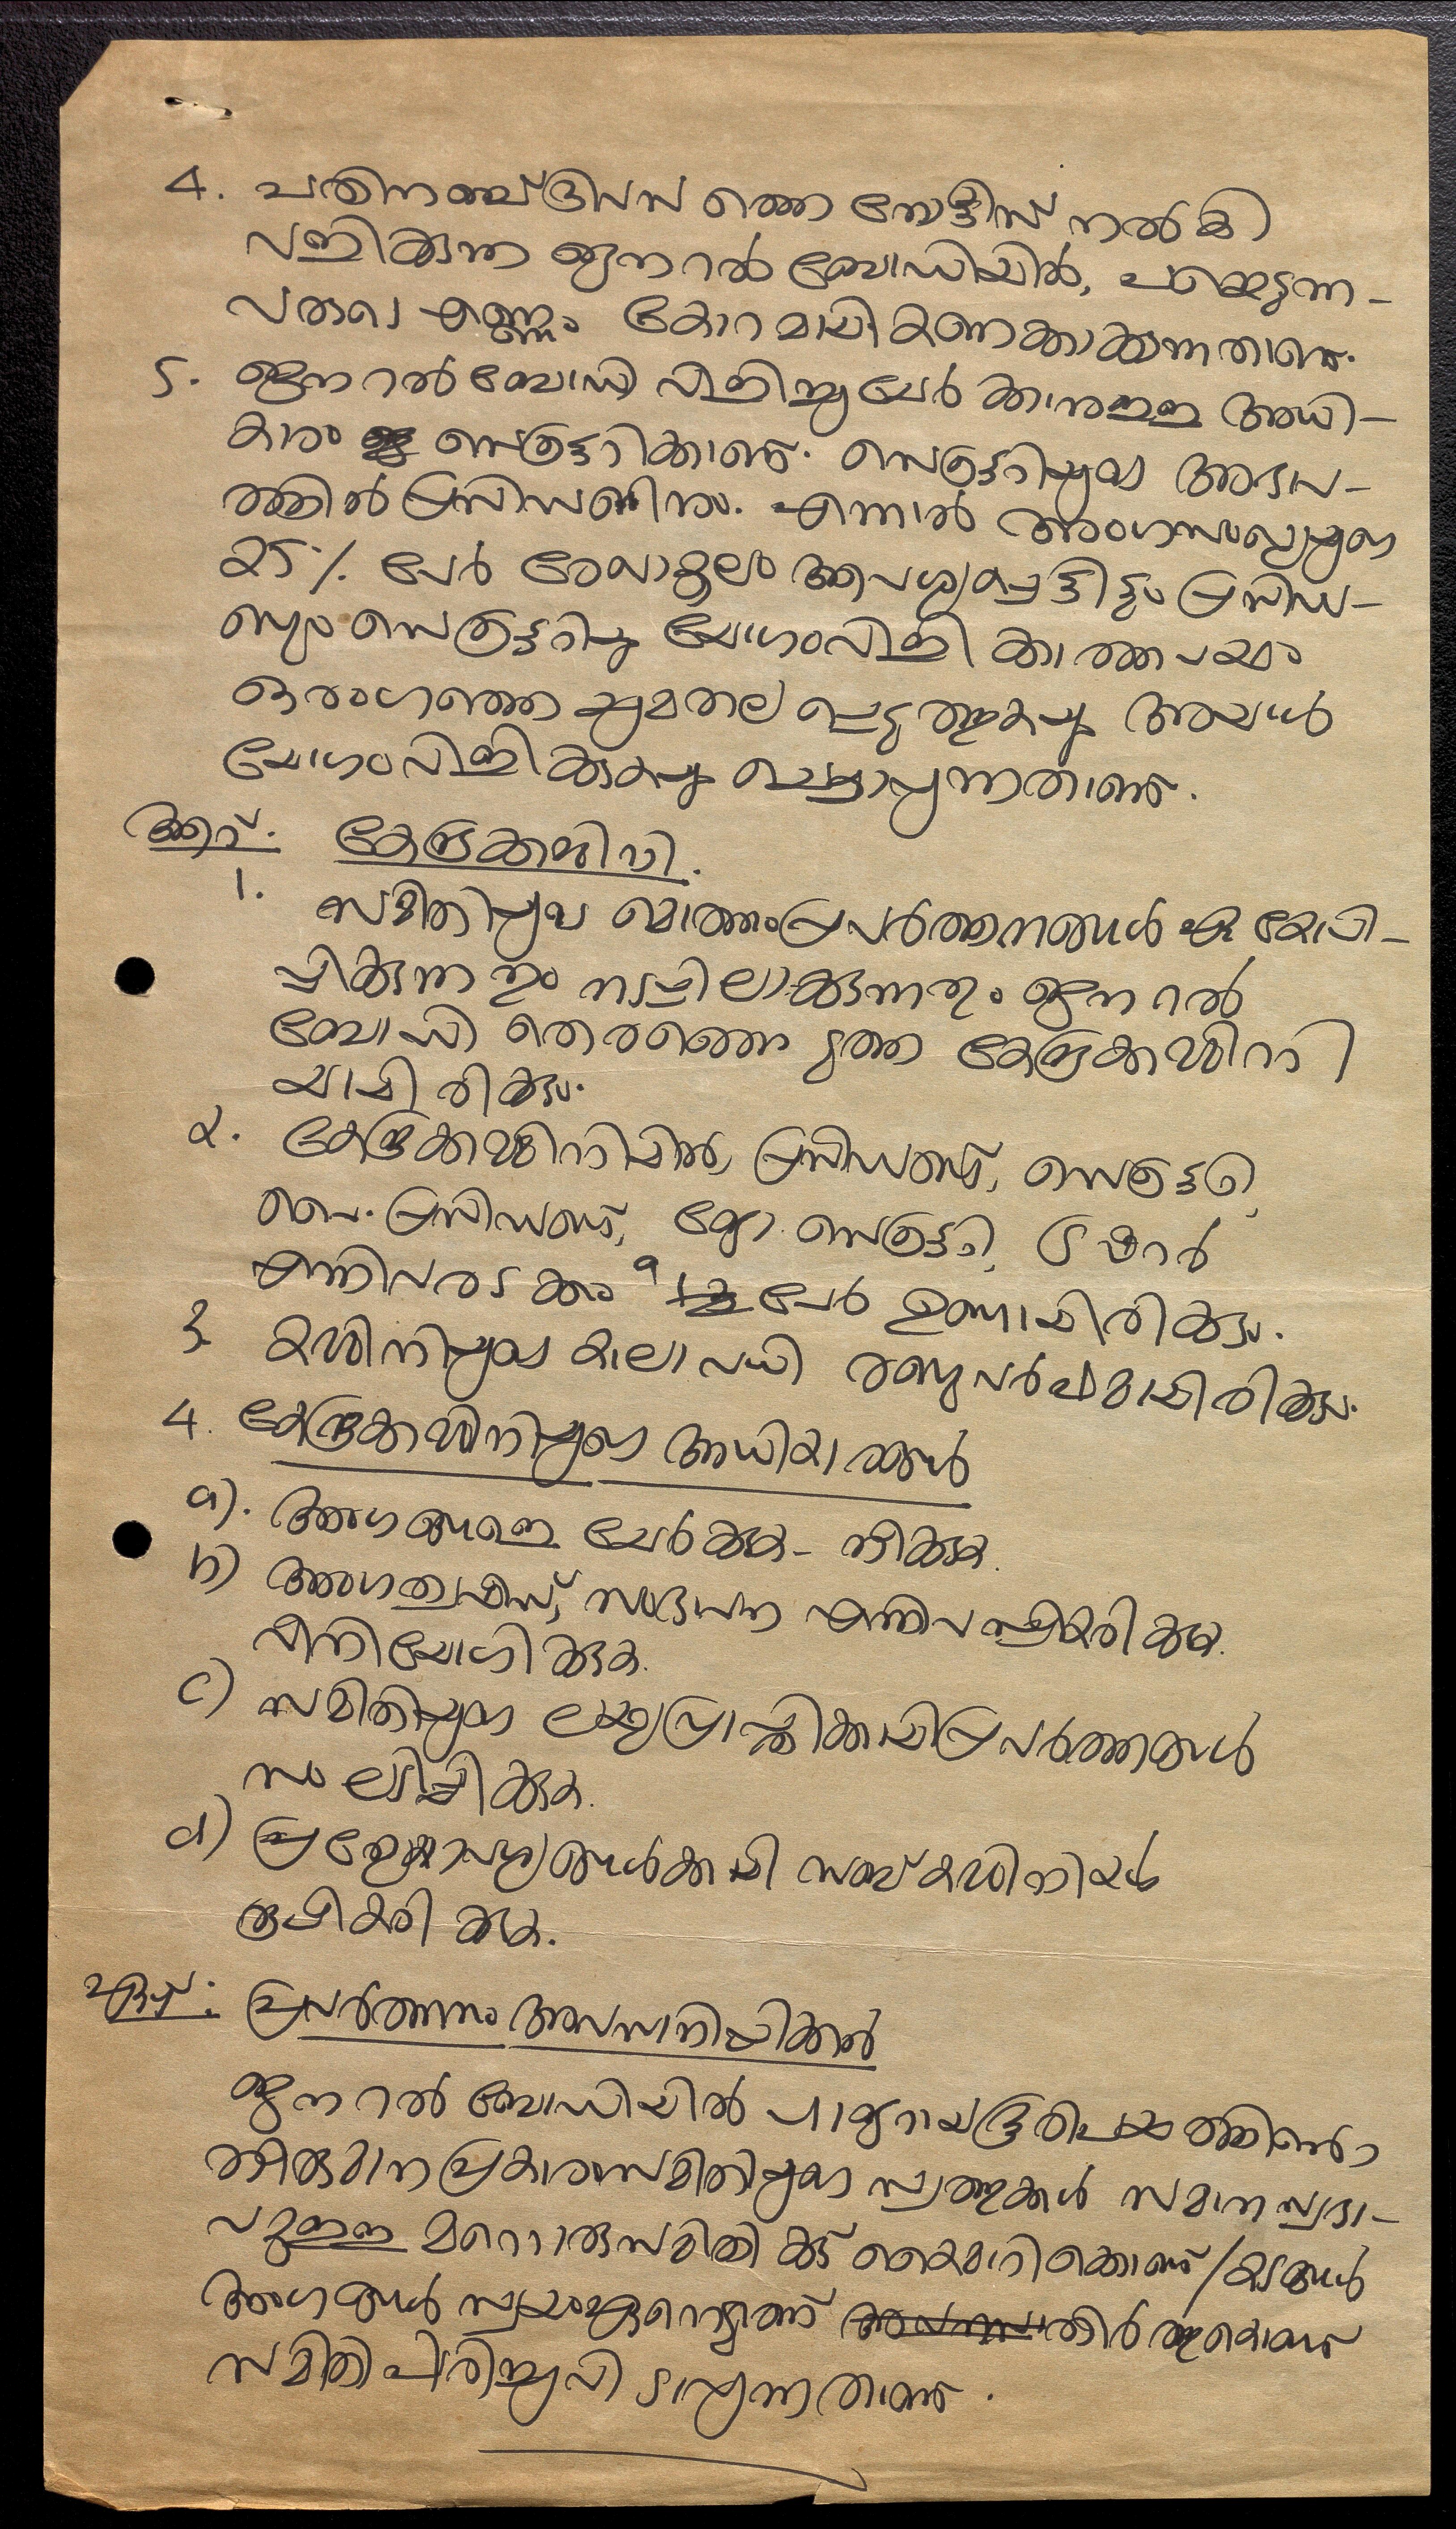 4. പതിനഞ്ച് ദിവസ ത്തെ നോട്ടീസ് നൽകി
വിളിക്കുന്ന ജനറൽ ബോഡിയിൽ, പങ്കെടുന്ന-
വരുടെ എണ്ണം കോറമായി കണക്കാക്കുന്നതാണ്.
5. ജനറൽ ബോഡി വിളിച്ചുചേർക്കാനുള്ള അധി-
കാരം സെക്രട്ടറിക്കാണ്. സെക്രട്ടറിയുടെ അഭാവ-
ത്തിൽ പ്രസിഡണ്ടിനും. എന്നാൽ അംഗസംഖ്യയുടെ
25% പേർ രേഖാമൂലം ആവശ്യപ്പെട്ടിട്ടും പ്രസിഡ-
ണ്ടും സെക്രട്ടറിയും യോഗം വിളിക്കാത്തപക്ഷം
ഒരംഗത്തെ ചുമതല പ്പെടുത്തുകയും അയാൾ
യോഗം വിളിക്കുകയും ചെയ്യാവുന്നതാണ്.
ആറ്. കേന്ദ്രക്കമ്മിറ്റി.
1. സമിതിയുടെ മൊത്തം പ്രവർത്തനങ്ങൾ ഏകോപി-
പ്പിക്കുന്നതും നടപ്പിലാക്കുന്നതും ജനറൽ
ബോഡി തെരഞ്ഞെടുത്ത കേന്ദ്രക്കമ്മിറ്റി
യായിരിക്കും.
2. കേന്ദ്രക്കമ്മിറ്റിയിൽ, പ്രസിഡണ്ട്, സെക്രട്ടറി,
വൈ. പ്രസിഡണ്ട്, ജോ. സെക്രട്ടറി, ട്രഷറർ
എന്നിവരടക്കം 9 പേർ ഉണ്ടായിരിക്കും.
3. കമ്മിറ്റിയുടെ കാലാവധി രണ്ടു വർഷമായിരിക്കും.
4. കേന്ദ്രക്കമ്മിറ്റിയുടെ അധികാരങ്ങൾ
a). അംഗങ്ങളെ ചേർക്കുക - നീക്കുക.
b) അംഗത്വഫീസ്, സംഭാവന എന്നിവ സ്വീകരിക്കുക.
വിനിയോഗിക്കുക.
c) സമിതിയുടെ ലക്ഷ്യപ്രാപ്തിക്കായി പ്രവർത്തനങ്ങൾ
സംഘടിപ്പിക്കുക.
d) പ്രത്യേകാവശ്യങ്ങൾക്കായി സബ് കമ്മിറ്റികൾ
രൂപീകരിക്കുക.
ഏഴ്: പ്രവർത്തനം അവസാനിപ്പിക്കൽ
ജനറൽ ബോഡിയിൽ ഹാജറായ ഭൂരിപക്ഷത്തിന്റെ
തീരുമാന പ്രകാരം സമിതിയുടെ സ്വത്തുക്കൾ സമാന സ്വഭാ-
വമുള്ള മറ്റൊരു സമിതിക്ക് കൈമാറിക്കൊണ്ട്/കടങ്ങൾ
അംഗങ്ങൾ സ്വയം ഏറ്റെടുത്ത് തീർത്തുകൊണ്ട്
സമിതി പിരിച്ചുവിടാവുന്നതാണ്.